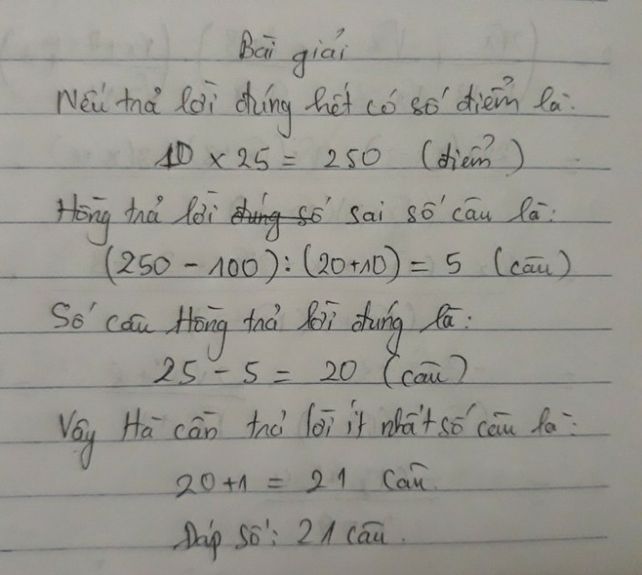 Bài giải
Nếu trả lời đúng hết có số điểm là:
10 × 25 = 250 (điểm)
Hồng trả lời đúng số sai số câu là:
(250 - 100) : (20+10) = 5 (câu)
Số câu Hồng trả lời đúng là:
25 - 5 = 20 (câu)
Vậy Hà cần trả lời ít nhất số câu là:
20+1 = 21 câu
Đáp số: 21 câu.